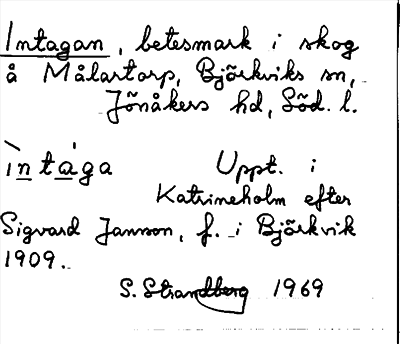 Intagan, betesmark i skog
å Målartorp, Björkviks sn,
Jönåkers hd, Söd. l.
ìntága
Uppt. i
Katrineholm efter
Sigvard Janson, f. i Björkvik
1909.
S. Strandberg 1969